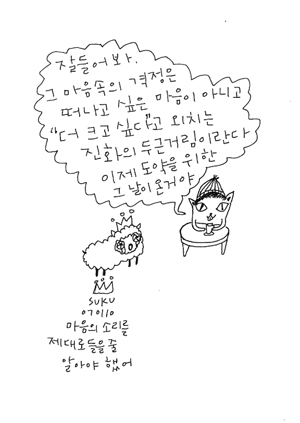 잘들어봐.
그 마음속의 격정은
떠나고 싶은 마음이 아니고
"더 크고 싶다"고 외치는
진화의 두근거림이란다
이제 도약을 위한
그 날이 온거야
SUKU
070110
마음의 소리를
제대로들을 줄
알아야 했어